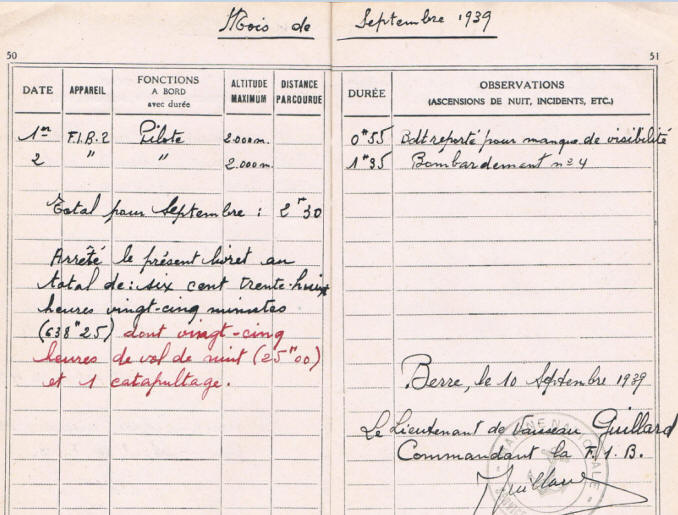 Mois de Septembre 1939
50
51
DATE APPAREIL FONCTIONS A BORD avec durée ALTITUDE MAXIMUM DISTANCE PARCOURUE DURÉE OBSERVATIONS (ASCENSIONS DE NUIT, INCIDENTS, ETC.)
1er F.I.B.2 Pilote 2.000m. 0H55 Bdt reporté pour manque de visibilité
2 " " 2.000m. 1H35 Bombardement nº 4
Total pour Septembre : 2H30
Arrêté le présent livret au
total de: six cent trente-huit
heures vingt-cinq minutes
(638H25) dont vingt-cinq
heures de vol de nuit (25H00)
et 1 catapultage.
Berre, le 10 Septembre 1939
Le Lieutenant de Vaisseau Guillard
Commandant la F.I.B.
Guillard
MARINE NATIONALE